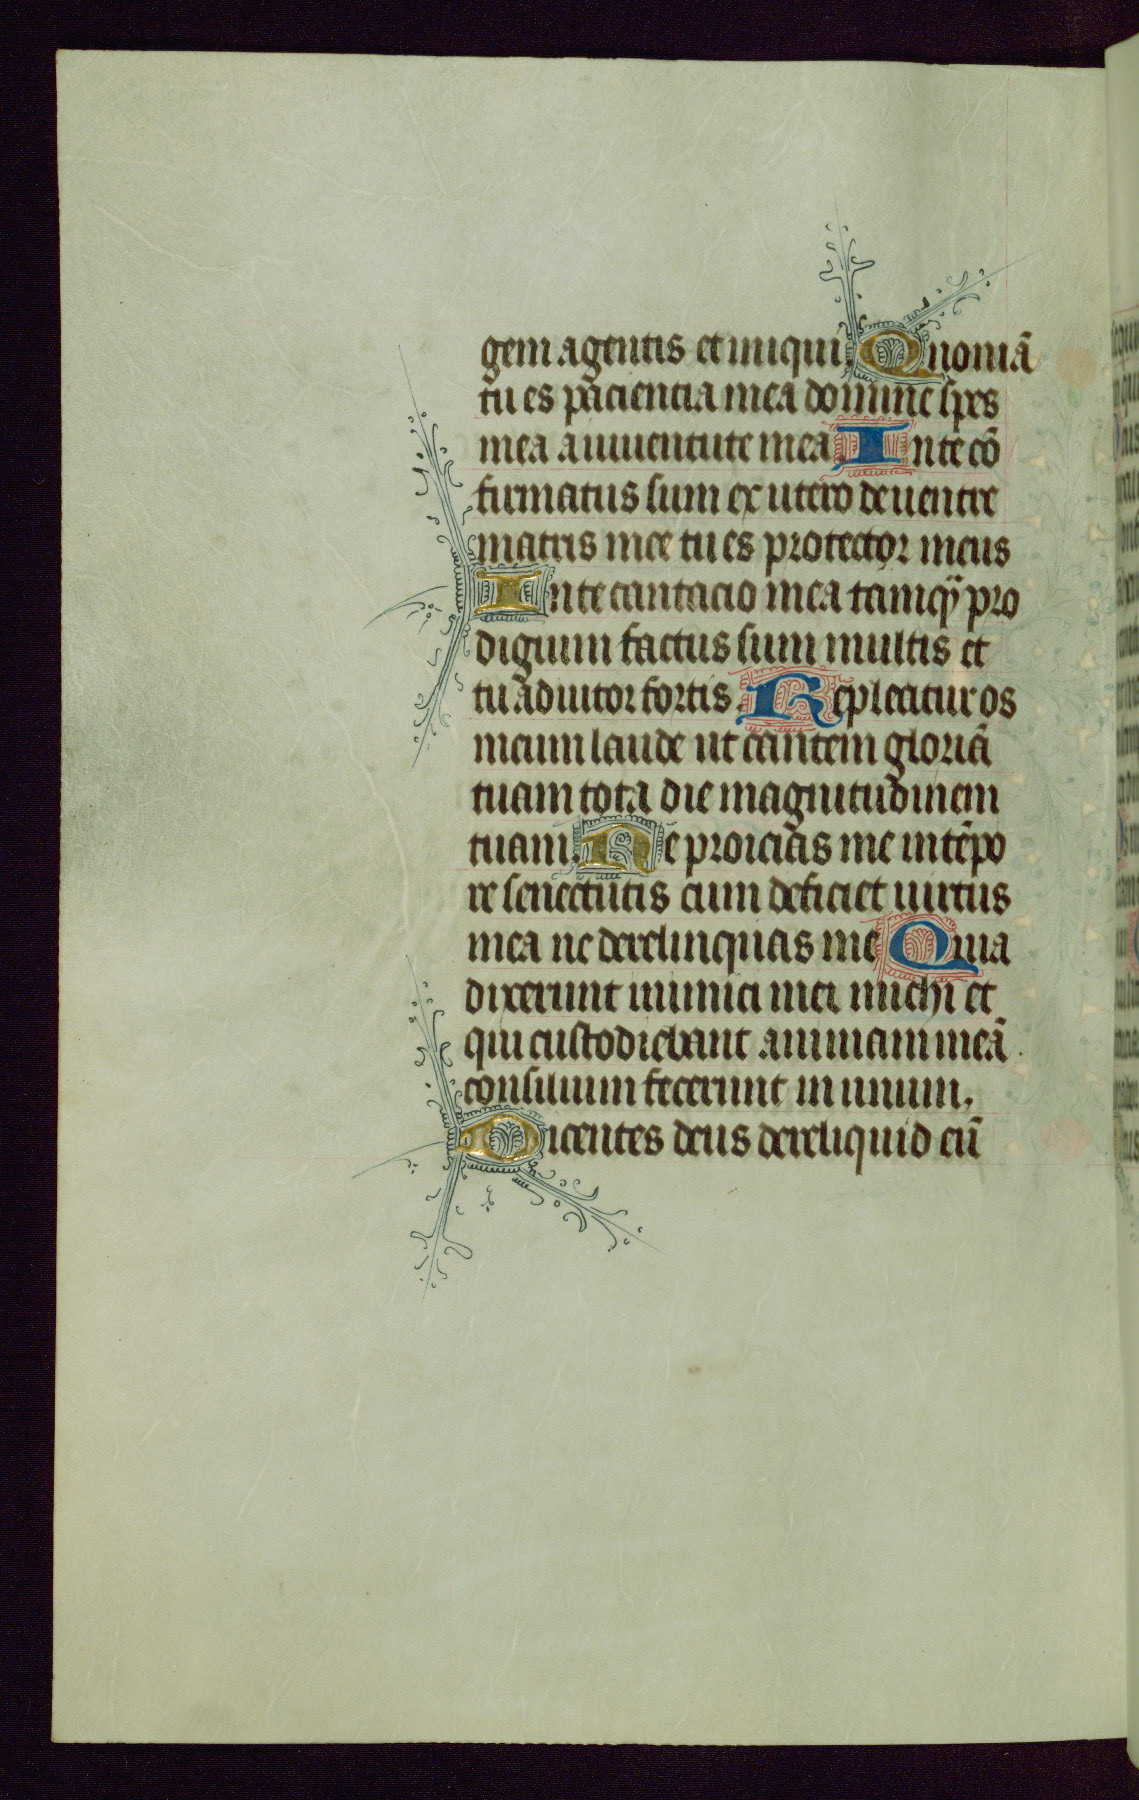 gem agentis et iniqui. Quoniā
tu es paciencia mea domine spes
mea a iuuentute mea. In te cō
firmatus sum ex utero de uentre
matris mee tu es protector meus
In te cantacio mea tamqȝ pro
digium factus sum multis et
tu adiutor fortis. Repleatur os
meum laude ut cantem gloriā
tuam tota die magnitudinem
tuam. Ne proicias me in tēpo
re senectutis cum deficiet uirtus
mea ne derelinquas me Quia
dixerunt inimici mei michi et
qui custodiebant animam meā
consilium fecerunt in unum.
Dicentes deus dereliquid eū